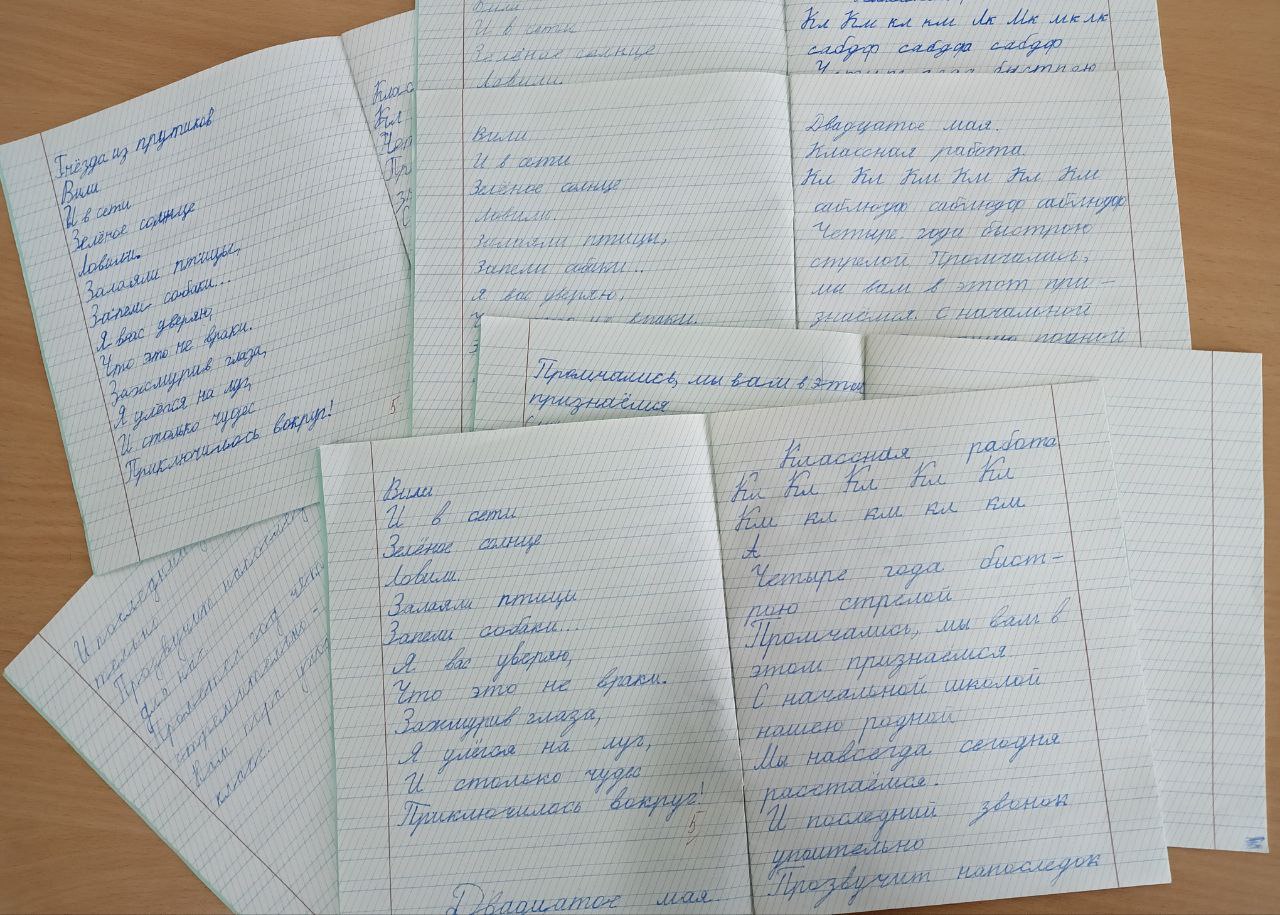 Гнёзда из прутиков
Вили
И в сети
Зелёное солнце
Ловили.
Залаяли птицы,
Запели собаки...
Я вас уверяю,
Что это не враки.
Зажмурив глаза,
Я улёгся на луг,
И столько чудес
Приключилось вокруг!
5
Вили
И в сети
Зелёное солнце
Ловили.
Кл Км кл км Лк Мк мк лк
сабдф сабдфа сабдф
Четыре года быстрою
Вили
И в сети
Зелёное солнце
Ловили.
Залаяли птицы,
Запели собаки...
Я вас уверяю,
не враки.
Двадцатое мая.
Классная работа.
Кл Кл Км Км Кл Км
саблюдф саблюдф саблюдф
Четыре года быстрою
стрелой Промчались,
мы вам в этот при-
знаёмся. С начальной
родной
Промчались, мы вам в этом
признаёмся
Вили
И в сети
Зелёное солнце
Ловили.
Залаяли птицы
Запели собаки...
Я вас уверяю,
Что это не враки.
Зажмурив глаза,
Я улёгся на луг,
И столько чудес
Приключилось вокруг!
5
Двадцатое мая.
Классная работа
Кл Кл Кл Кл Кл
Км кл км кл км
А
Четыре года быст-
рою стрелой
Промчались, мы вам в
этом признаемся.
С начальной школой
нашею родной
Мы навсегда сегодня
расстаёмся.
И последний звонок
упоительно
Прозвучит напоследок
И последний
Прозвучит
для нас
год
класс.